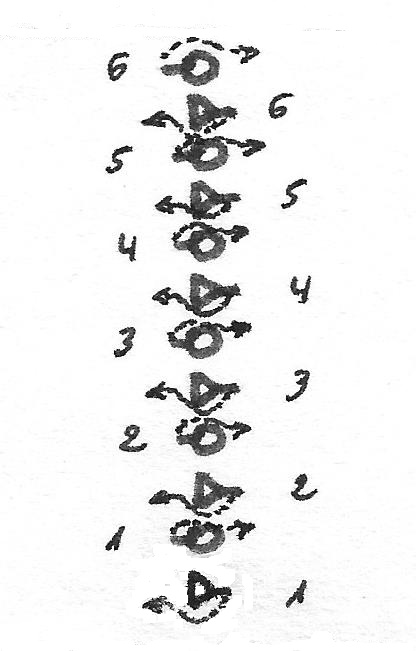 6
6
5
5
4
4
3
3
2
2
1
1